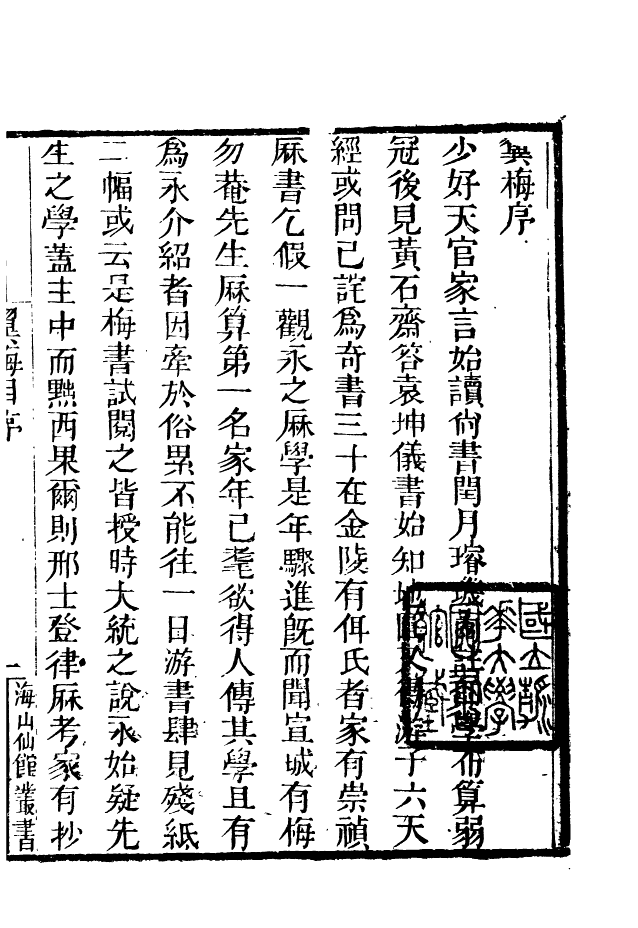 翼梅序
少好天官家言始讀尙書閏月璿璣兩注卽學布算弱
冠後見黃石齋答袁坤儀書始知地圓游子六天
經或問已詫爲奇書三十在金陵有佴氏者家有崇禎
厤書乞假一觀永之厤學是年驟進旣而聞宣城有梅
勿菴先生厤算第一名家年已耄欲得人傳其學且有
爲永介紹者因牽於俗累不能往一日游書肆見殘紙
二幅或云是梅書試閱之皆授時大統之說永始疑先
生之學蓋主中而黜西果爾則邢士登律厤考家有抄
翼梅目序
一
海山仙館叢書